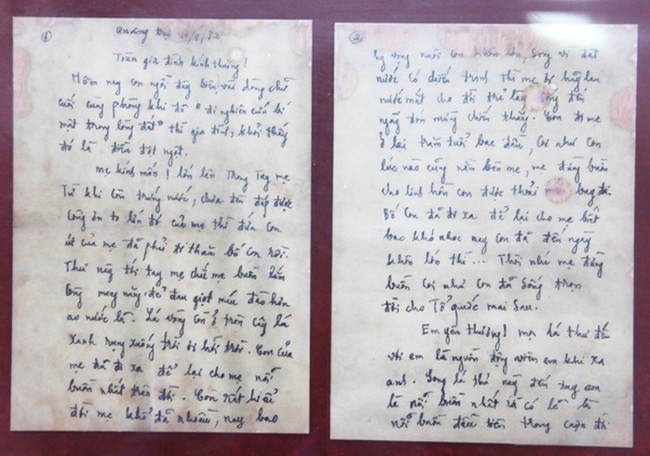 ①
Quảng Trị
Toàn gia đình kính thương!
Hôm nay con ngồi đây biên vài dòng chữ
cuối cùng phòng khi đã "đi nghiên cứu bí
mật trong lòng đất" thì gia đình khỏi thấy
đó là điều đột ngột.
Mẹ kính mến! lớn lên trong tay mẹ
Từ khi còn trứng nước, chưa đền đáp được
công ơn to lớn đó của mẹ thì đứa con
út của mẹ đã phải đi theo bố con rồi.
Thư này tới tay mẹ chắc mẹ buồn lắm
lòng may này để đau giọt máu đào hơn
ao nước lã. Lá vàng còn ở trên cây lá
xanh rụng xuống trời ơi hỡi trời. Con của
mẹ đã đi xa để lại cho mẹ nỗi
buồn nhất trên đời. Con rất hiểu
đời mẹ khổ đã nhiều, nay bao
②
hy vọng nuôi con khôn lớn, song vì đất
nước có chiến tranh thì mẹ ơi hãy lau
nước mắt cho đời trẻ lại sống đến
ngày đón mừng chiến thắng. Con đi mẹ
ở lại trăm tuổi bạc đầu, coi như con
lúc nào cũng nằm bên mẹ, mẹ đừng buồn
cho linh hồn con được thoải mái bay đi
Bố con đã đi xa để lại cho mẹ biết
bao khó nhọc nay con đã đến ngày
khôn lớn thì ... Thôi nhé mẹ đừng
buồn coi như con đã sống trọn
đời cho Tổ quốc mai sau.
Em yên thương! mọi lá thư đến
với em là nguồn động viên em khi xa
anh. Song lá thư này đến tay em
là nỗi buồn nhất và có lẽ là
nỗi buồn đầu tiên trong cuộc đời